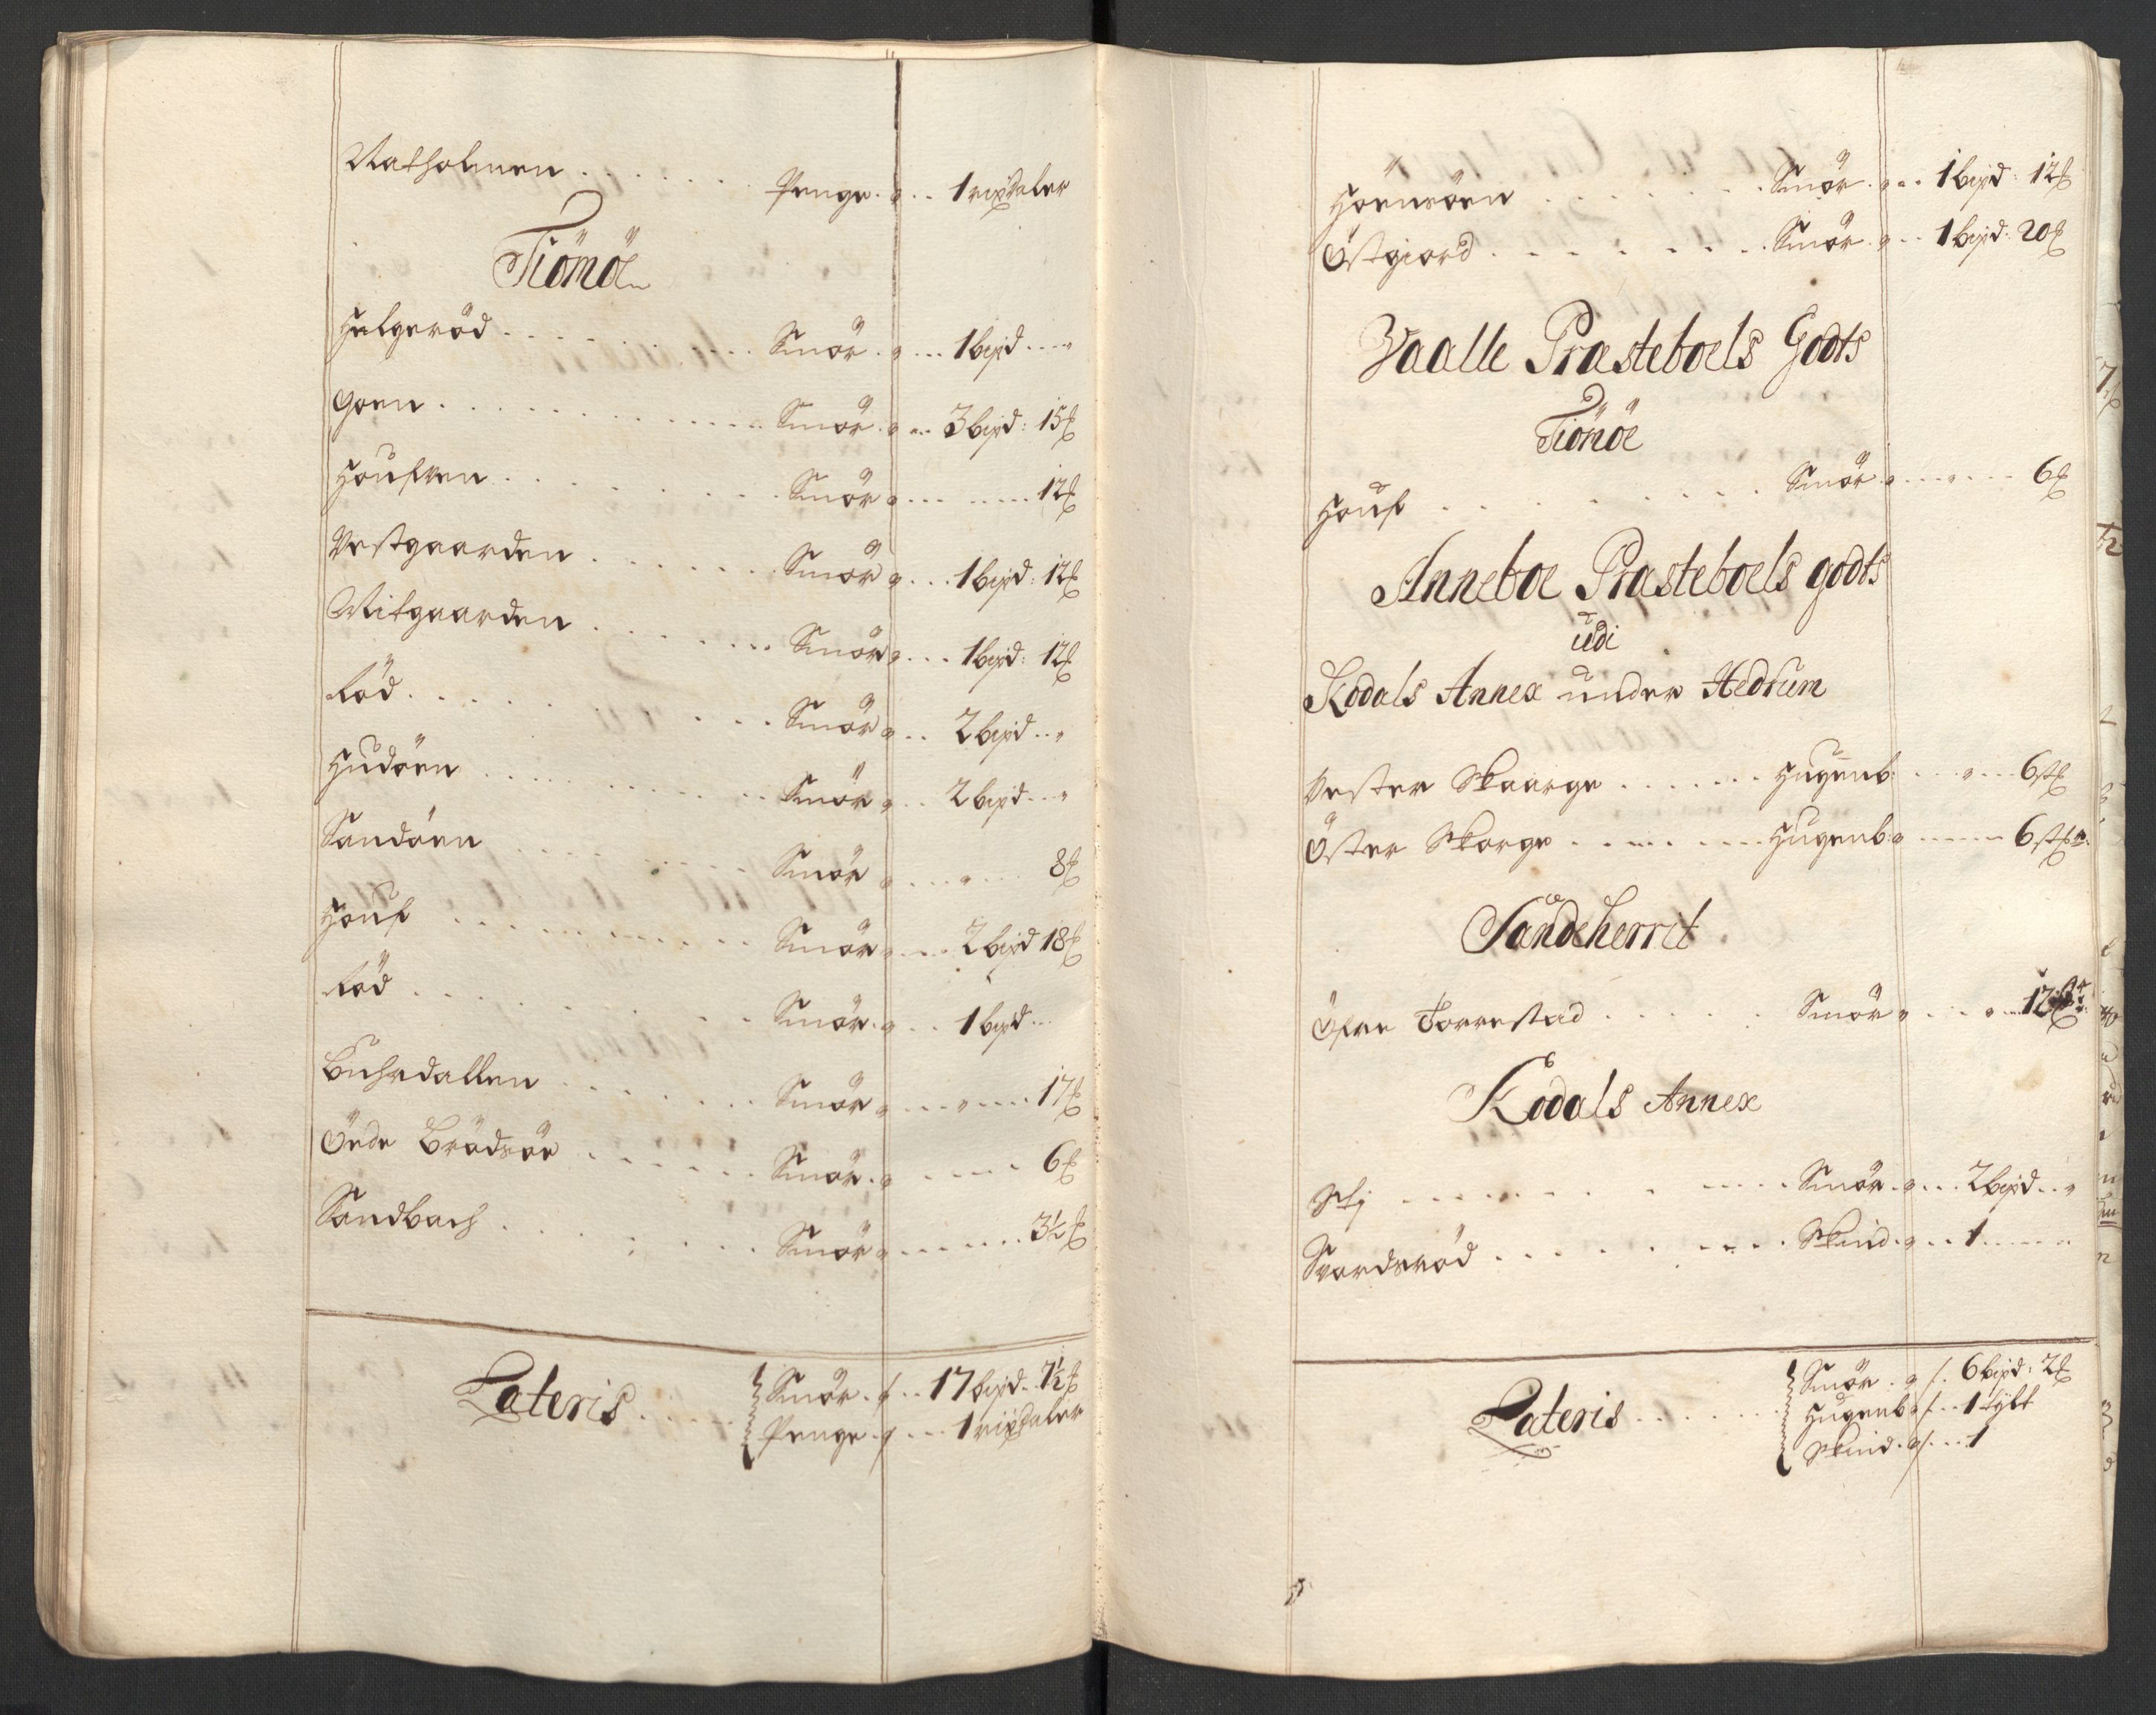 Natholmen . . . . . . . Penge . . . 1 rixdaler
Tiömöe
Helgeröd . . . . . . . Smör . . . 1 bpd . . .
Goen . . . . . . . Smör . . . 3 bpd : 15 ℔
Houfven . . . . . . . Smör . . . . . . 12 ℔
Vestgaarden . . . . . . . Smör . . . 1 bpd : 12 ℔
Mitgaarden . . . . . . . Smör . . . 1 bpd : 12 ℔
Röd . . . . . . . Smör . . . 2 bpd . . .
Hudöen . . . . . . . Smör . . . 2 bpd . . .
Sandöen . . . . . . . Smör . . . . . . 8 ℔
Houf . . . . . . . Smör . . . 2 bpd 18 ℔
Röd . . . . . . . Smör . . . 1 bpd . . .
Buhrdallen . . . . . . . Smör . . . . . . 17 ℔
Öede Brödsör . . . . . . . Smör . . . . . . 6 ℔
Sandbach . . . . . . . Smör . . . . . . 3½ ℔
Lateris . . . . . Smör . . . 17 bpd . 7½ ℔
Penge . . . 1 rixdaler
Höensöen . . . . . . . Smör . . . 1 bpd : 12 ℔
Östgiord . . . . . . . Smör . . . 1 bpd : 20 ℔
Vaalle Præsteboels Godts
Tiömöe
Houf . . . . . . . Smör . . . . . . 6 ℔
Anneboe Præsteboels godts
udi
Kodals Annex under Hedrum
Vester Skaarge . . . . . . . Hugenb: . . . . . . 6 st
Öster Skorge . . . . . . . Hugenb: . . . . . . 6 st
Sandeherrit
Öfre Torrestad . . . . . . . Smör . . . . . . 12 ℔
Kodals Annex
Slj . . . . . . . Smör . . . 2 bpd . . .
Svardsröd . . . . . . . Skind . . . 1 . . .
Lateris . . . . . . . Smör . . . 6 bpd : 2 ℔
Hugenb . . . 1 tÿlt
Skind . . . 1